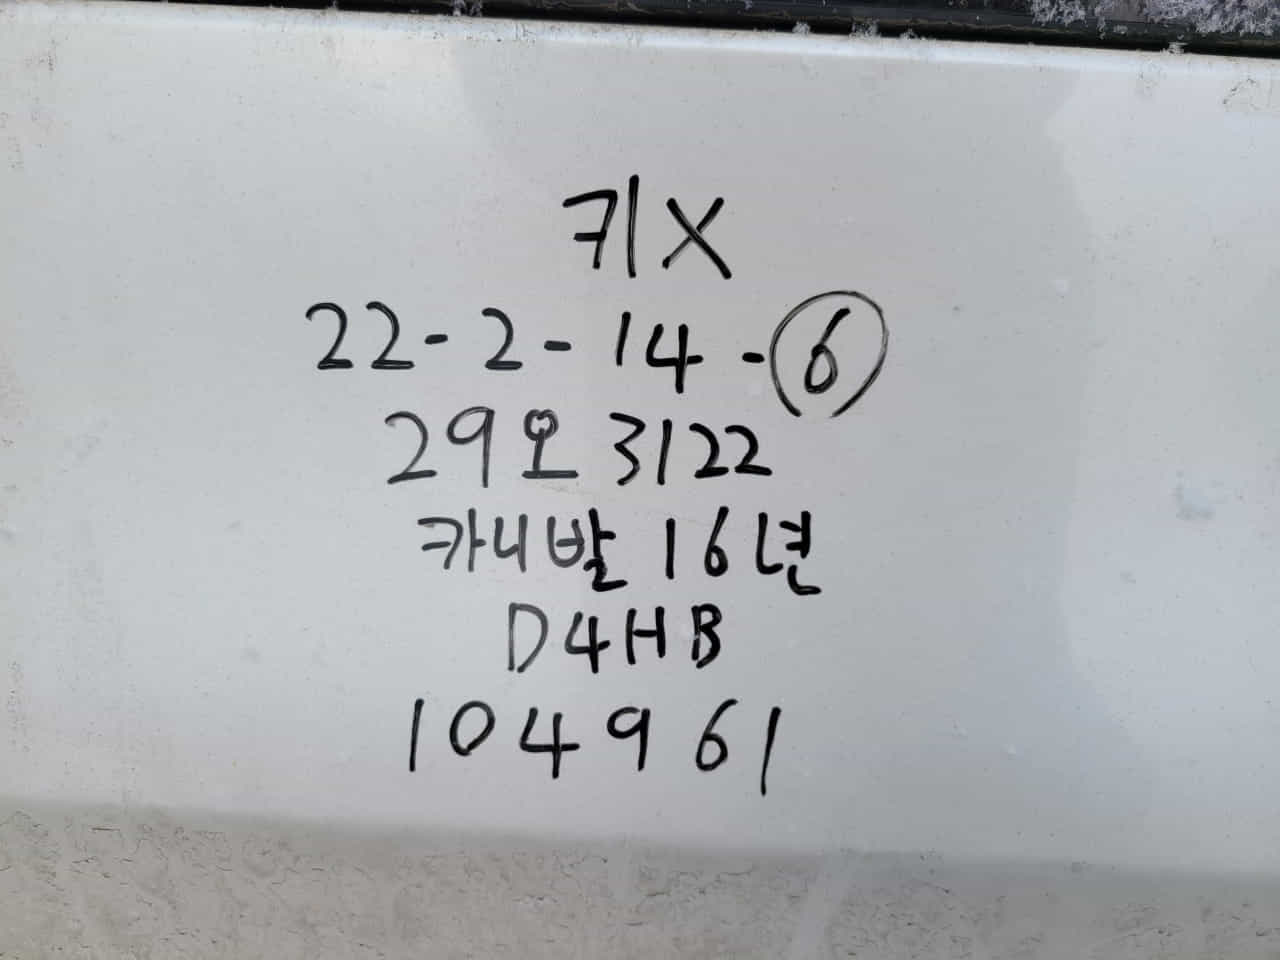 키X
22-2-14-⑥
29오3122
카니발 16년
D4HB
104961